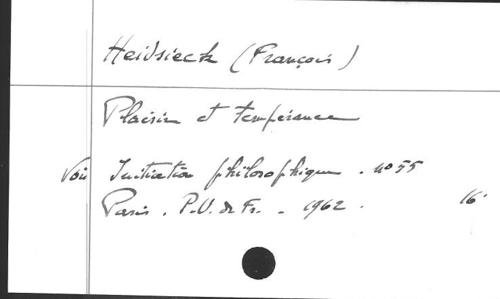 Heidsieck (François)
Plaisir et tempérance
Voir Initiation philosophique. no 55
Paris. P.U. de Fr. - 1962. 16°